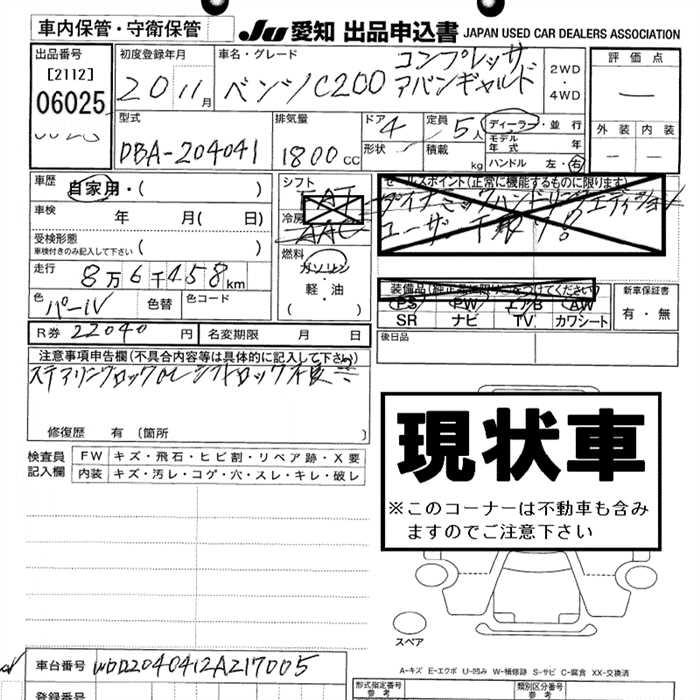 車内保管・守衛保管
JU 愛知 出品申込書 JAPAN USED CAR DEALERS ASSOCIATION
出品番号
[2112]
06025
初度登録年月
20 11月
車名・グレード
ベンツC200 コンプレッサ
アバンギャルド
2WD
・
4WD
評価点
—
外装 内装
— —
型式
DBA-204041
排気量
1800CC
ドア 4
形状
定員 5人
積載 kg
ディーラー・並行
モデル年式 年
ハンドル 左・右
車歴
自家用・( )
車検
年 月( 日)
受検形態
車検付きのみ記入して下さい ( )
走行
8万6千458km
色 パール 色替 色コード
R券 22040円 名変期限 月 日
シフト
冷房
燃料
ガソリン
・
軽・油
( )
セールスポイント(正常に機能するものに限ります)
ダイナミックハンドリングエディション
装備品
PS PW エアB AW
SR ナビ TV カワシート
新車保証書
有・無
後日品
注意事項申告欄(不具合内容等は具体的に記入して下さい)
ステアリングロック シフトロック不良
修復歴 有〔箇所 〕
検査員記入欄
FW キズ・飛石・ヒビ割・リペア跡・X要
内装 キズ・汚レ・コゲ・穴・スレ・キレ・破レ
現状車
※このコーナーは不動車も含み
ますのでご注意下さい
スペア
A-キズ E-エクボ U-凹み W-補修跡 S-サビ C-腐食 XX-交換済
車台番号 WDD2040412A217005
登録番号
形式指定番号
参考
類別区分番号
参考